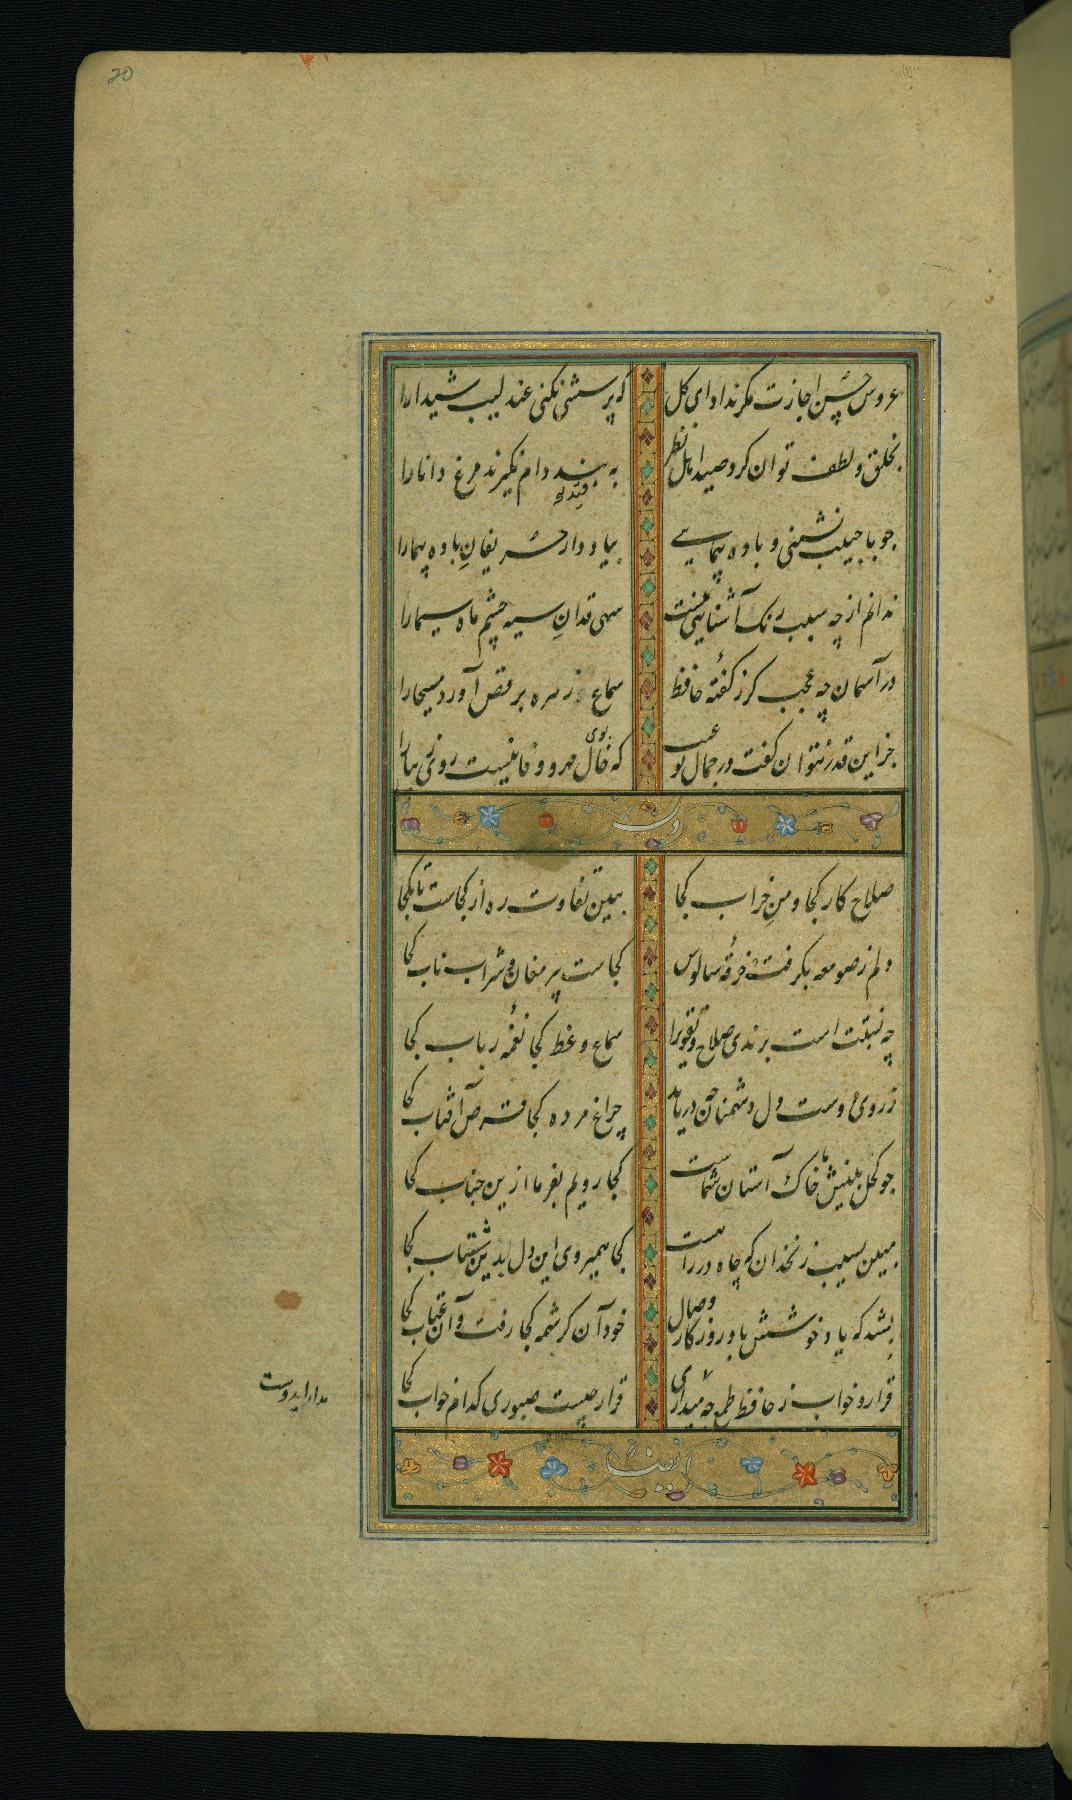 20
عروس حسن اجازت مگر نداد ای گل که پرسشی نکنی عندلیب شیدا را
بخلق و لطف توان کرد صید اهل نظر به بند دام نگیرند مرغ دانا را
قیدله
چو با حبیب نشینی و باده پیمایی بیاد دار حریفان باده پیما را
ندانم از چه سبب رنک آشنایی نیست سهی قدان سیه چشم ماه سیما را
در آسمان چه عجب کرز کفتهٔ حافظ سماع زهره برقص آورد مسیحا را
جز این قدر نتوان کفت در جمال تو عیب که خال مهر و وفا نیست روی زیبا را
بوی
صلاح کار کجا و من خراب کجا ببین تفاوت ره از کجاست تا بکجا
دلم ز صومعه بکرفت و خرقهٔ سالوس کجاست پیر مغان و شراب ناب کجا
چه نسبتست است برندی صلاح و تقوی را سماع وعظ کجا نغمهٔ رباب کجا
ز روی دوست دل دشمنان چه دریابد چراغ مرده کجا قرص آفتاب کجا
چو کحل بینش ما خاک آستان شماست کجا رویم بفرما ازین جناب کجا
مبین بسیب زنخدان که چاه در راهست کجا همیروی این دل بدین شتاب کجا
بشد که یاد خوشش باد روزکار وصال خود آن کرشمه کجا رفت و آن عتاب کجا
قرار و خواب ز حافظ طمع چه میداری قرار چیست صبوری کدام خواب کجا
ایضا
مدار ایدوست